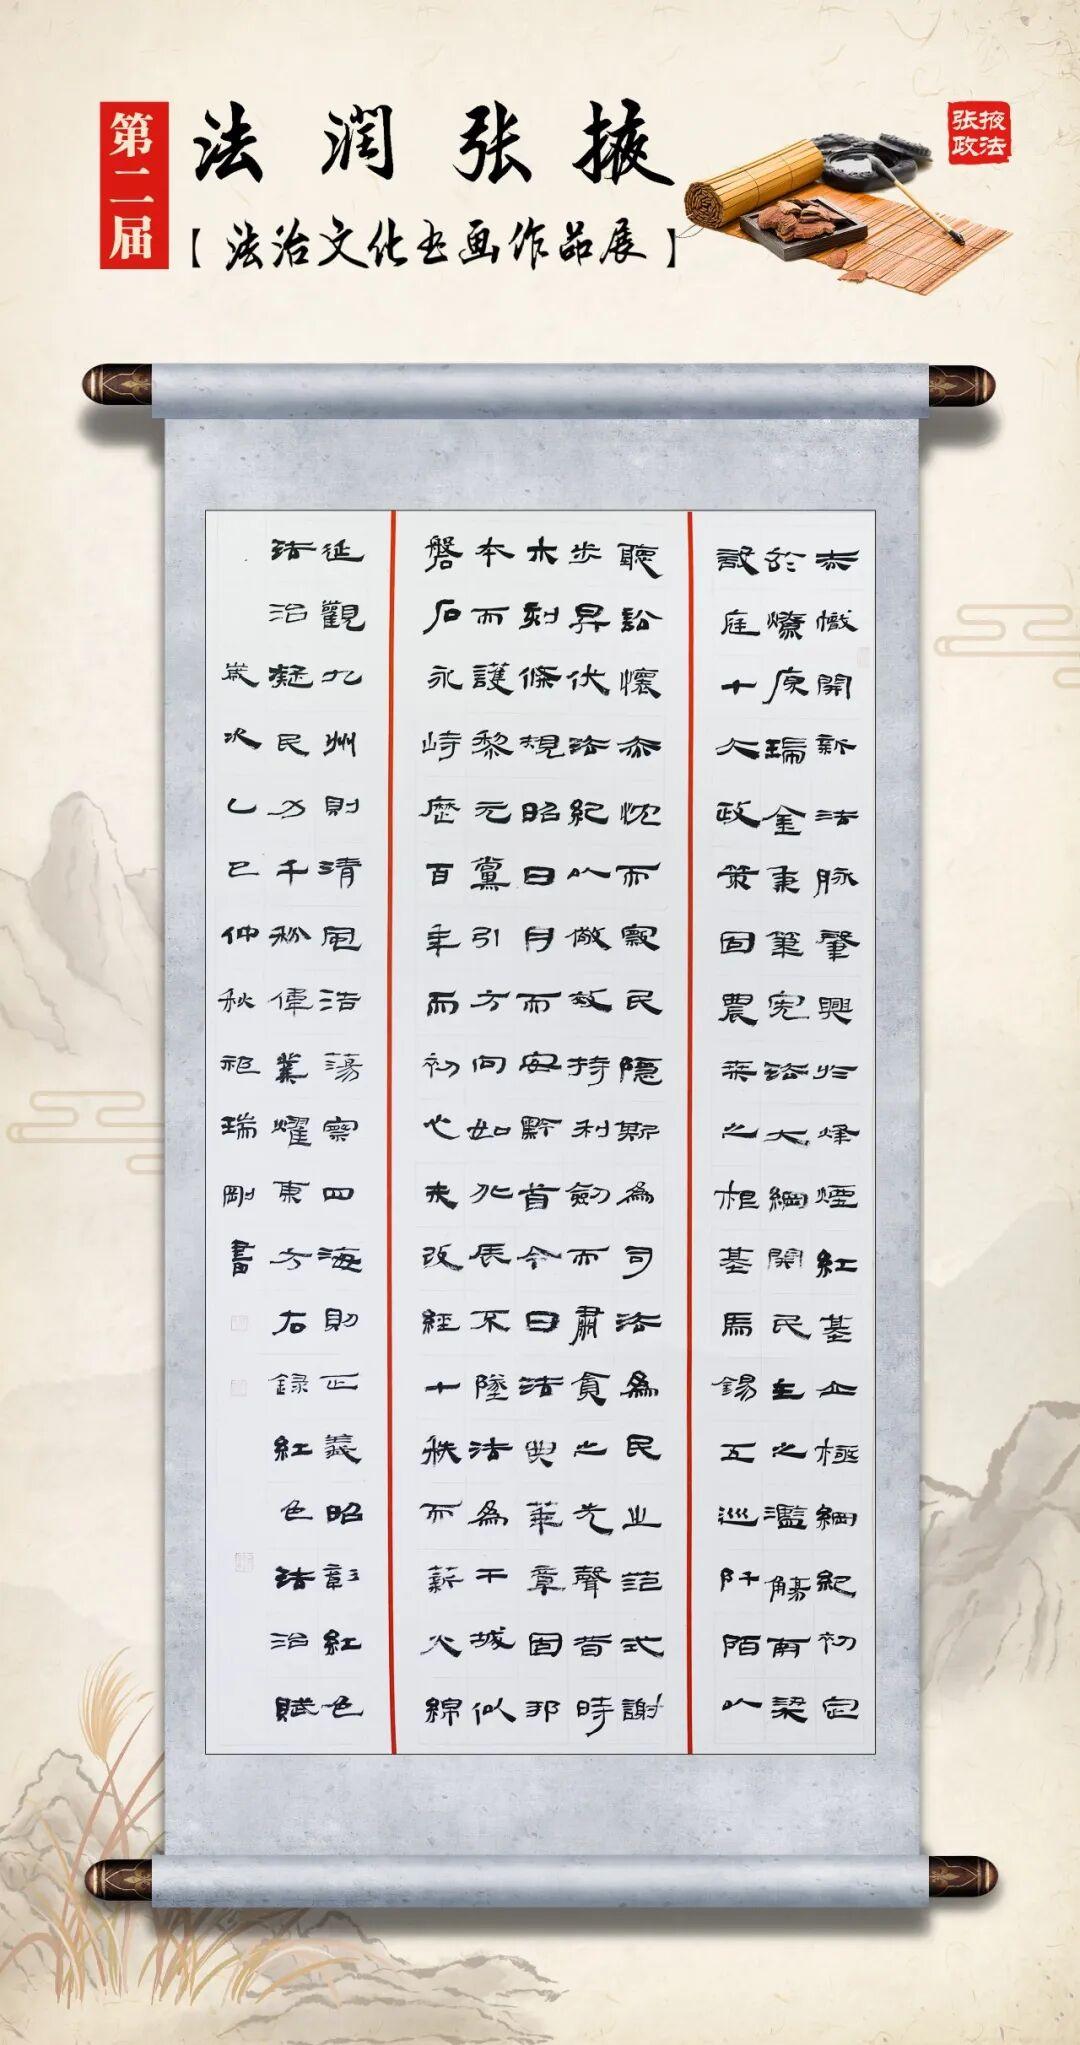 第二届
法润张掖
【法治文化书画作品展】
张掖政法
赤幟開新法脉肇興於烽煙紅基立極綱紀初定
於燎原瑞金秉筆憲法大綱開民主之濫觴南梁
設庭十大政策固農桑之根基馬錫五巡阡陌以
聽訟懷赤忱而察民隱斯為司法為民之范式謝
步昇伏法紀以儆效持利劍而肅貪之先聲昔時
木刻條規昭日月而安黔首今日法典華章固邦
本而護黎元黨引方向如北辰不墜法為干城似
磐石永峙歷百年而初心未改經十秩而薪火綿
延觀九州則清風浩蕩察四海則正義昭彰紅色
法治凝民力千秋偉業耀東方右錄紅色法治賦
歲次乙巳仲秋祁瑞剛書